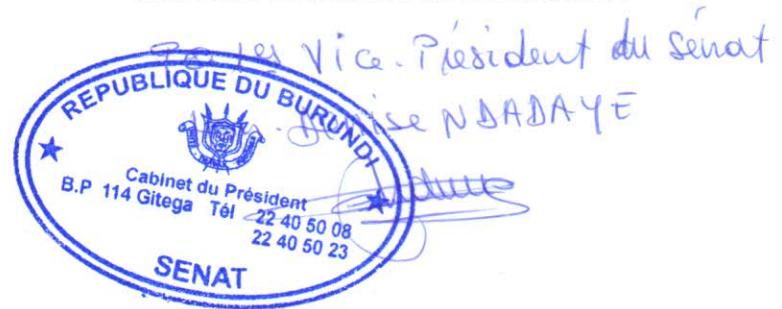 Vice-Président du Sénat
Denise NDADAYE
REPUBLIQUE DU BURUNDI
Cabinet du Président
B.P 114 Gitega Tél 22 40 50 08
22 40 50 23
SENAT